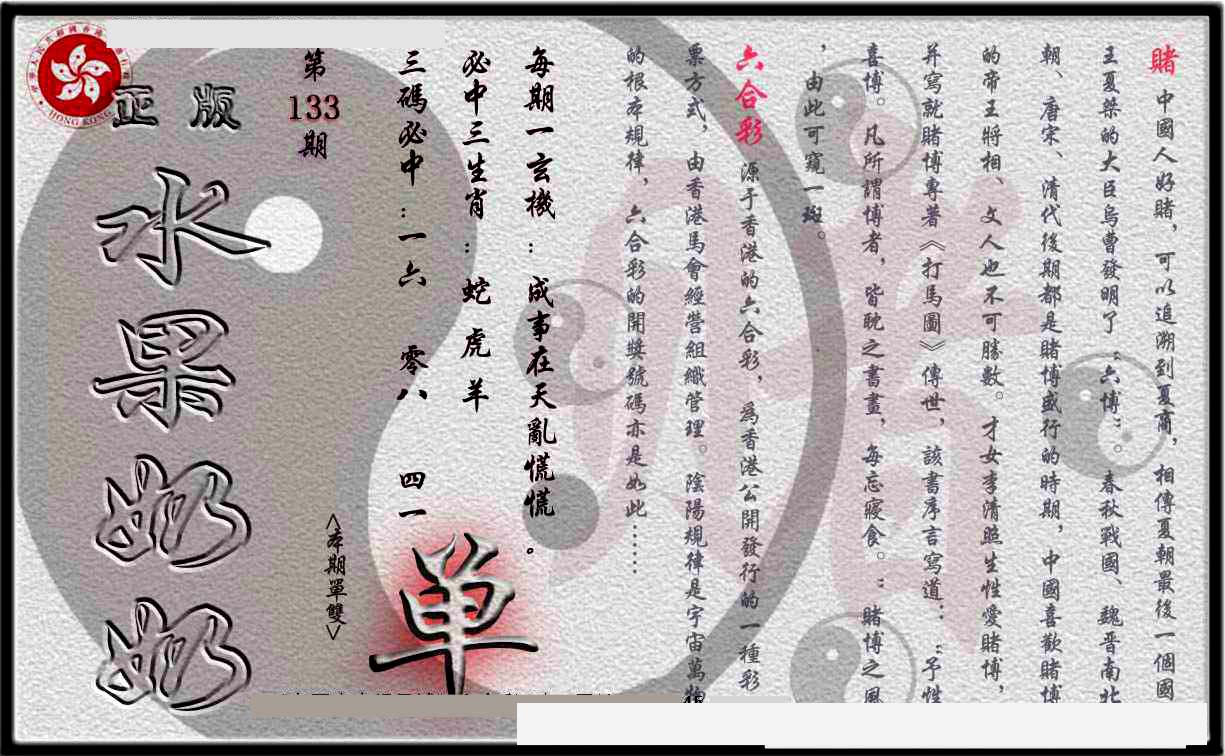 賭 中國人好賭，可以追溯到夏商，相傳夏朝最後一個國
王夏桀的大臣烏曹發明了“六博”。春秋戰國、魏晋南北
朝、唐宋、清代後期都是賭博盛行的時期，中國喜歡賭博
的帝王將相、文人也不可勝數。才女李清照生性愛賭博，
并寫就賭博專著《打馬圖》傳世，該書序言寫道：“予性
喜博。凡所謂博者，皆耽之書畫，每忘寢食。”賭博之風
，由此可窺一斑。
六合彩 源于香港的六合彩，為香港公開發行的一種彩
票方式，由香港馬會經營組織管理。陰陽規律是宇宙萬物
的根本規律，六合彩的開獎號碼亦是如此……
每期一玄機：成事在天亂慌慌。
必中三生肖：蛇虎羊
三碼必中：一六 零八 四一
第133期
<本期單雙>
单
正版
水果奶奶
HONG KONG